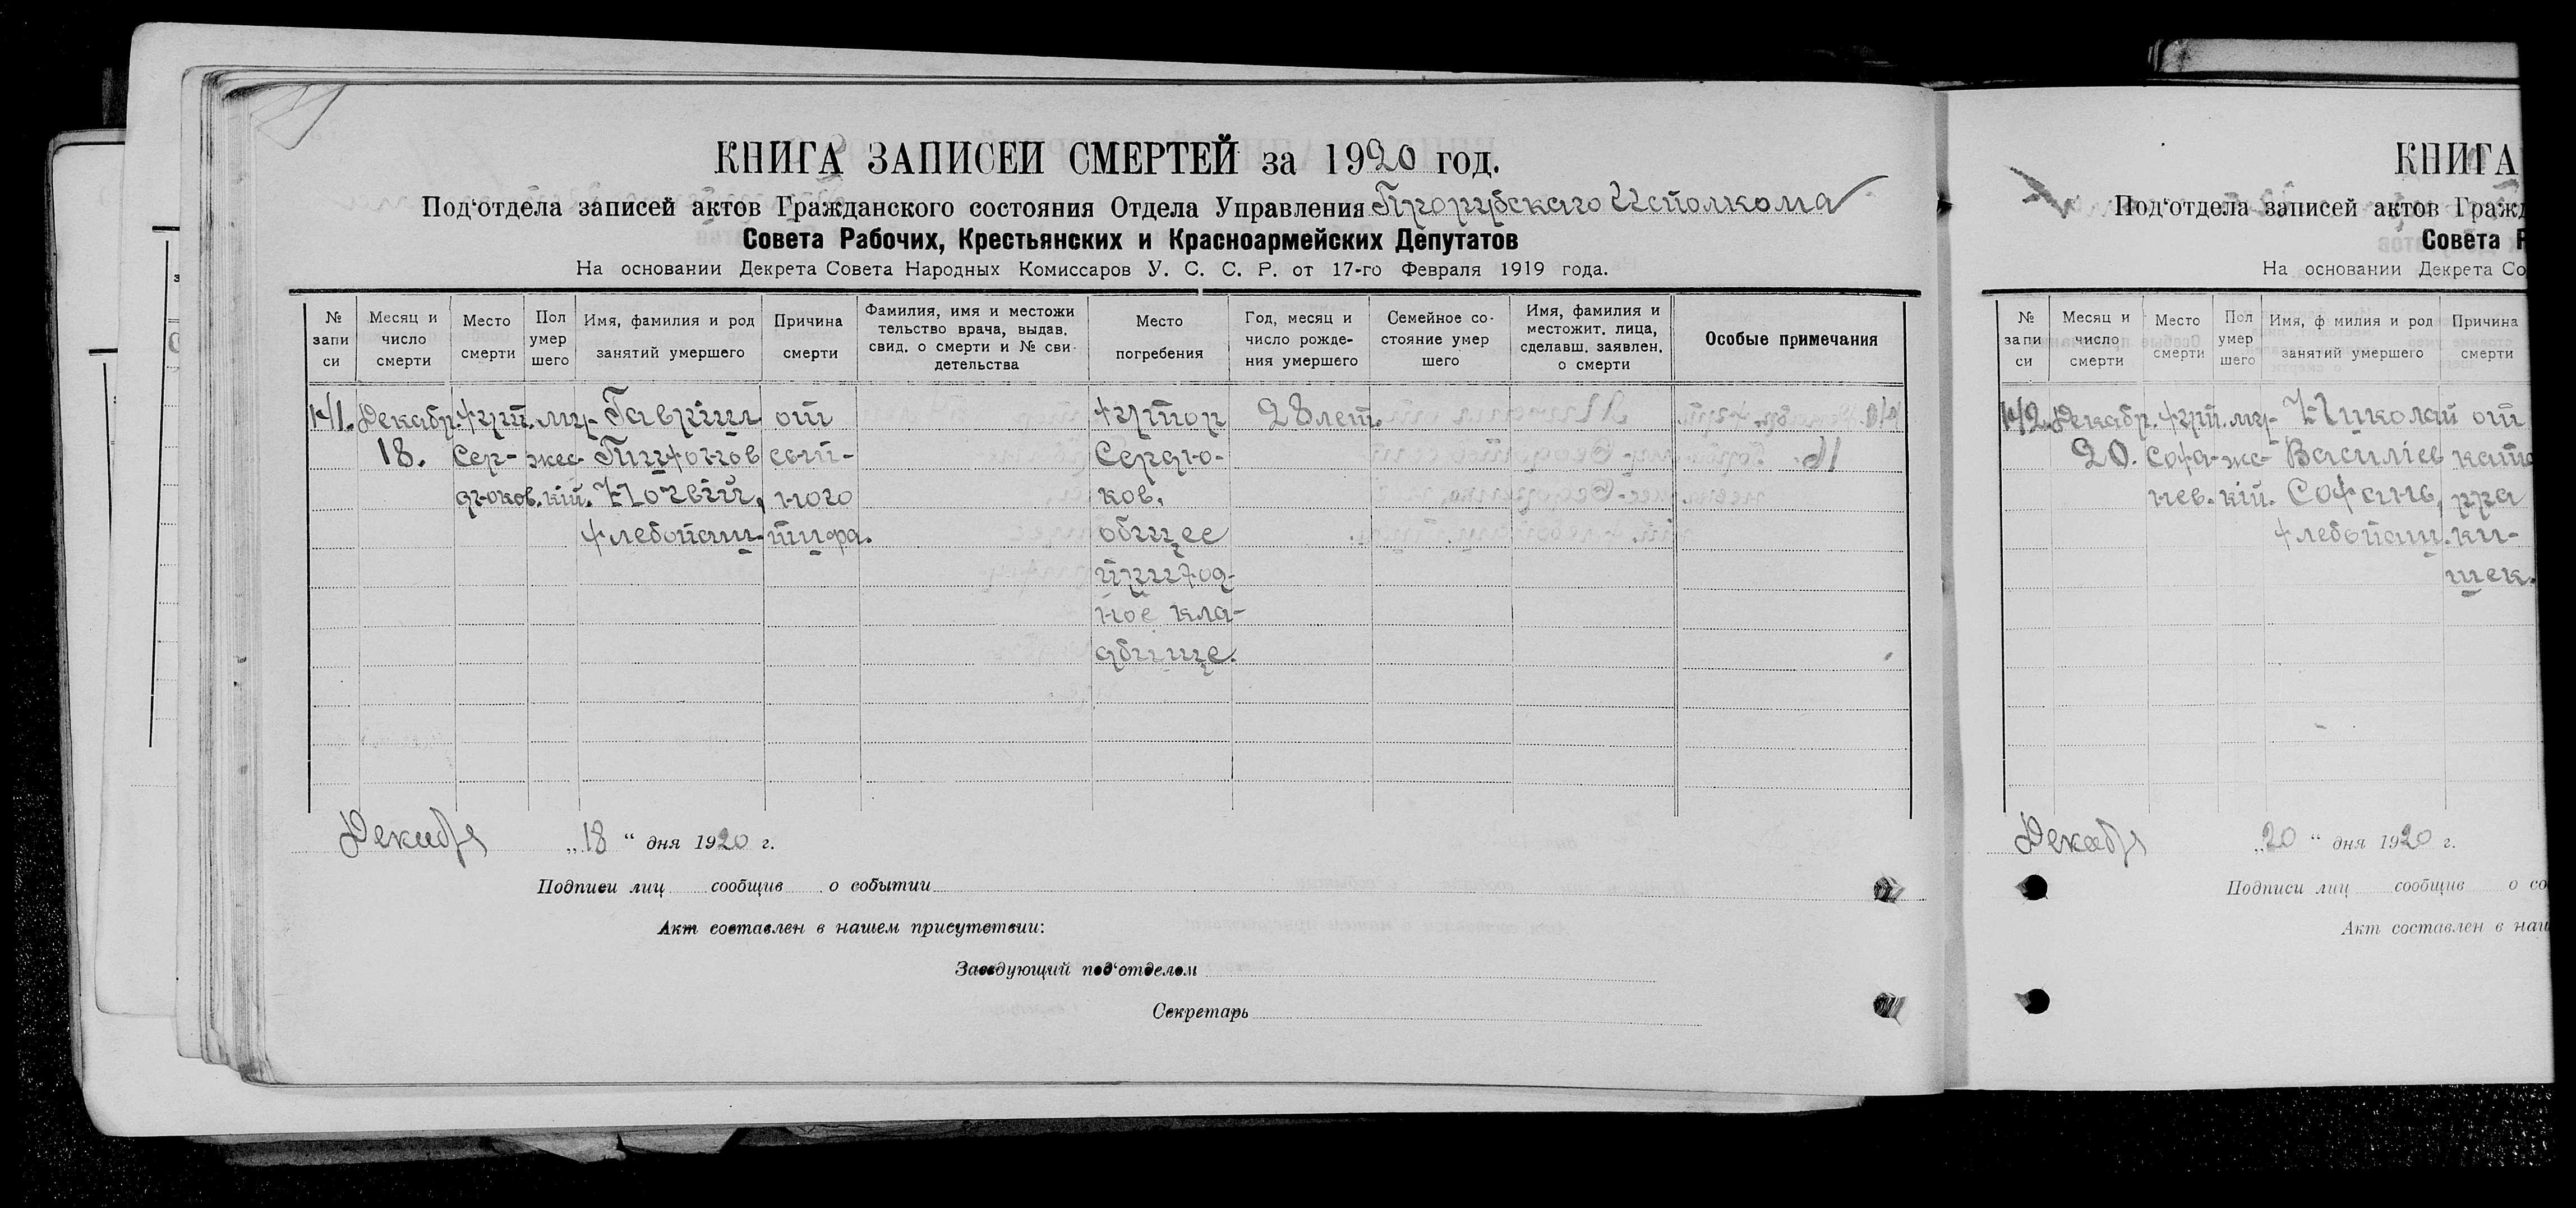 КНИГА ЗАПИСЕЙ СМЕРТЕЙ за 1920 год.
Под‘отдела записей актов Гражданского состояния Отдела Управления Прорубского Исполкома
Совета Рабочих, Крестьянских и Красноармейских Депутатов
На основании Декрета Совета Народных Комиссаров У. С. С. Р. от 17-го Февраля 1919 года.
№ запи си
Месяц и число смерти
Место смерти
Пол умер шего
Имя, фамилия и род занятий умершего
Причина смерти
Фамилия, имя и местожи тельство врача, выдав. свид. о смерти и № сви- детельства
Место погребения
Год, месяц и число рожде- ния умершего
Семейное со- стояние умер шего
Имя, фамилия и местожит. лица, сделавш. заявлен. о смерти
Особые примечания
141. Декабр. хут. му- Гавриил от хутор 28 лет.
18. Сер- жес- Тихонов сып- Сердю-
дюков. кій. ного ков,
хлебопаш- тифа. общее
приход-
ное кла-
дбище.
Декабря „18“ дня 1920 г.
Подписи лиц сообщив о событии
Акт составлен в нашем присутствии:
Заведующий под‘отделом
Секретарь
КНИГА
Под‘отдела записей актов Гражд
Совета Р
На основании Декрета Со
№ запи си
Месяц и число смерти
Место смерти
Пол умер шего
Имя, ф милия и род занятий умершего
Причина смерти
142. Декабр. хут. му- Николай от
20. Софа- жс- Василіев ката
нев. кій. Софань, рра
хлебопаш. ки-
шек.
Декабря „20“ дня 1920 г.
Подписи лиц сообщив о со
Акт составлен в наш